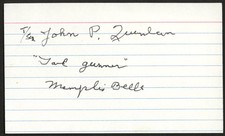 T/Sgt John P. Quinlan
"Tail gunner"
Memphis Belle